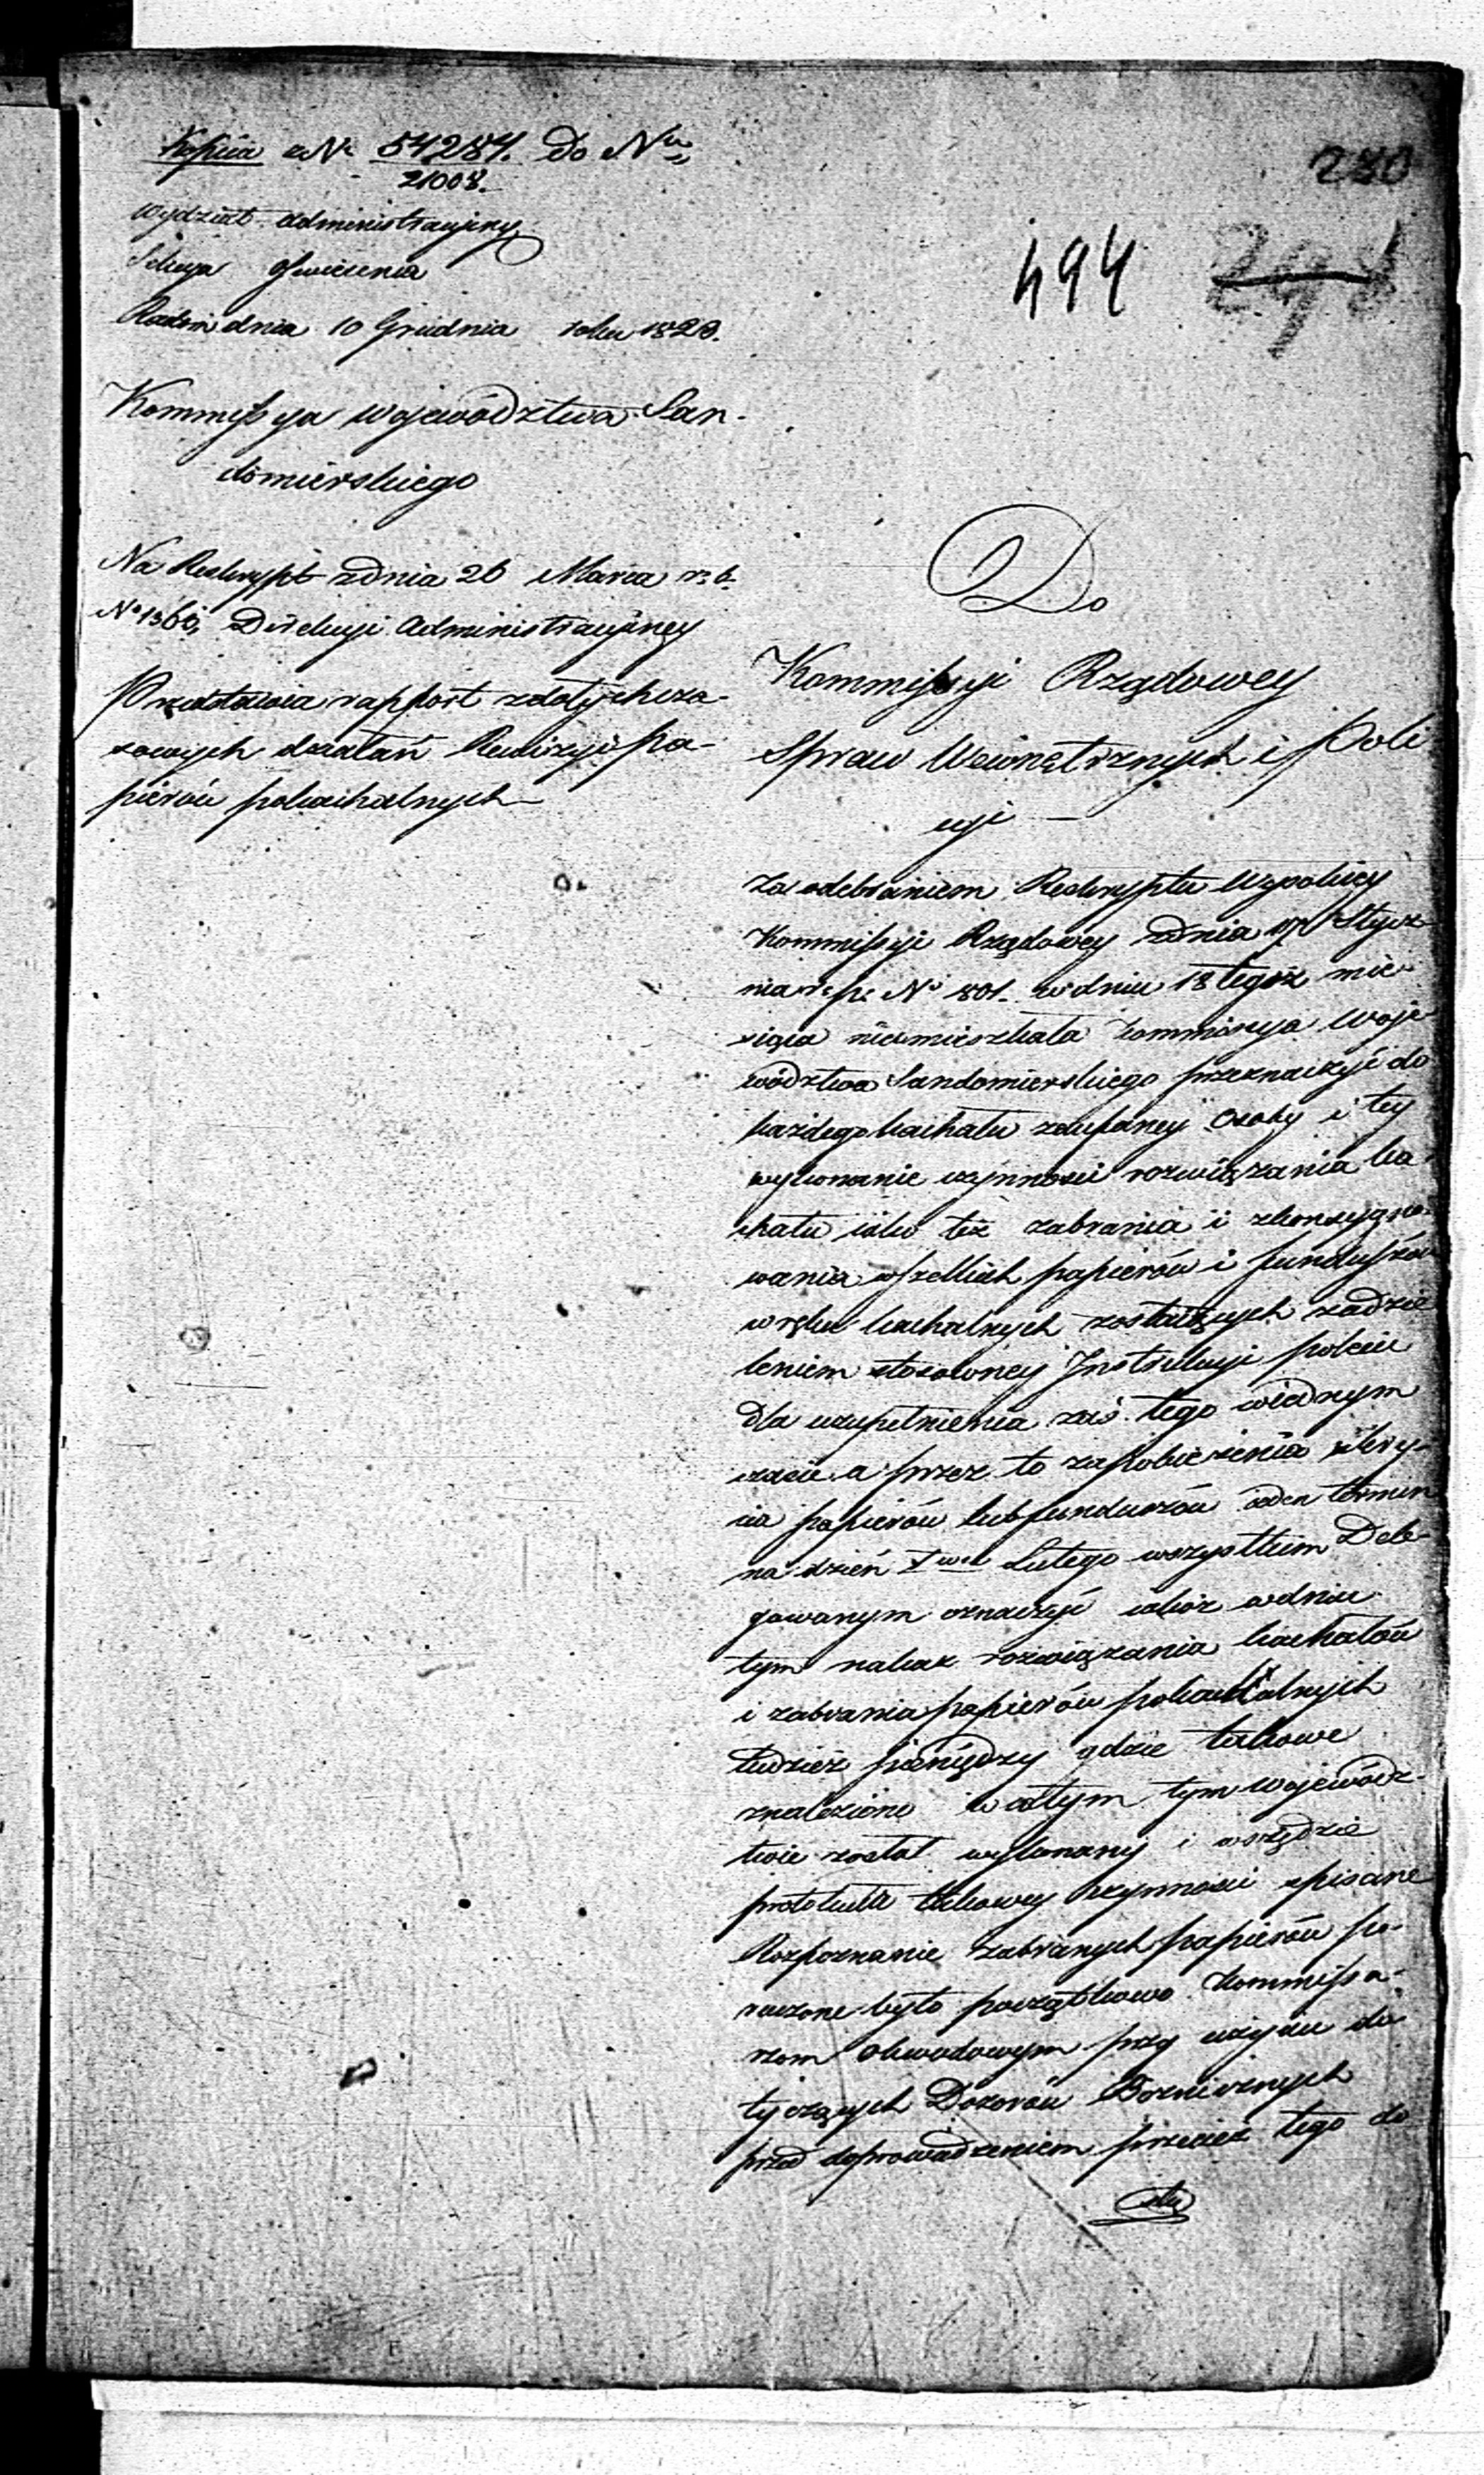 Kopiia z N° 54284. Do Nru
21008.
280
494
Wydział administracyiny
Sekcya
Radom dnia 10 Grudnia roku 1823.
Kommissya Województwa San-
domierskiego
Na Reskrypt z dnia 26 Marca r. b.
N° 1366, Dyrekcyi Administracyiney
Przedstawia rapport z dotychcza-
sowych działań Rewizyi pa-
pierów pokachalnych
Do
Kommissyi Rządowey
Spraw Wewnętrznych i Poli
cyi
Za odebraniem Reskryptu Wysokiey
Kommissyi Rządowey z dnia Stycz
nia N° 801. w dniu 18 tegoż mie
siąca niemieszkała Kommissya Woje
wództwa Sandomierskiego przeznaczyć do
każdego kachału zaufaney Osoby i tey
wykonanie czynności rozwiązania ka
chału iako też zabrania i zkonsygno
wania wszelkich papierów i funduszów
w ręku kachalnych zostaiących z udzie
leniem stosowney Instrukcyi polecić
dla uzupełnienia zaś tego w iednym
czasie a przez to zapobieżenia skry-
cia papierów lub funduszów ieden termin
na dzień Lutego wszystkim Dele-
gowanym oznaczyć iakoż w dniu
tym nakaz rozwiązania kachałów
i zabrania papierów pokachalnych
tudzież pieniędzy gdzie takowe
znaleziono w całym tym wojewódz-
twie został wykonany i wszędzie
protokuła takowey czynności spisane
Rozpoznanie zabranych papierów po-
ruczone było początkowo Kommissa-
rzom Obwodowym przy użyciu do
tyczących Dozorów Bożnicznych
przed doprowadzeniem przecież tego do